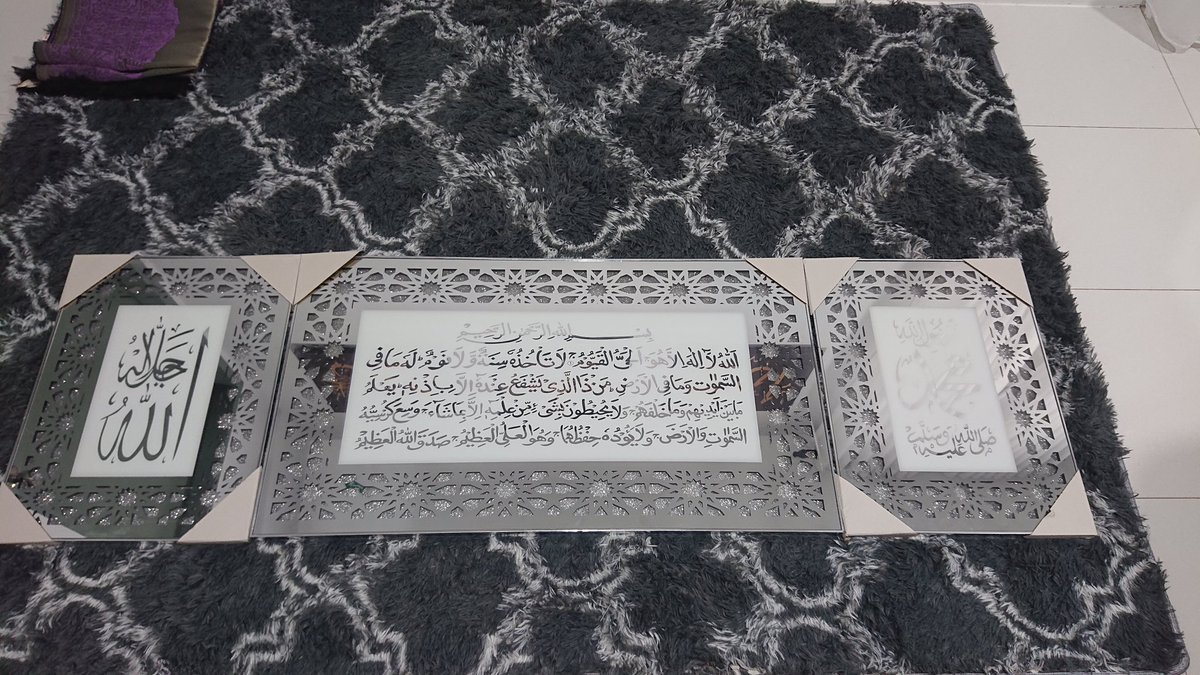 رسول الله
محمد
صلى الله عليه وسلم
بسم الله الرحمن الرحيم
الله لا اله الا هو الحي القيوم لا تأخذه سنة ولا نوم له ما في
السموات وما في الارض من ذا الذي يشفع عنده الا باذنه يعلم
ما بين ايديهم وما خلفهم ولا يحيطون بشئ من علمه الا بما شاء وسع كرسيه
السموات والارض ولا يؤده حفظهما وهو العلي العظيم صدق الله العظيم
جل جلاله
الله